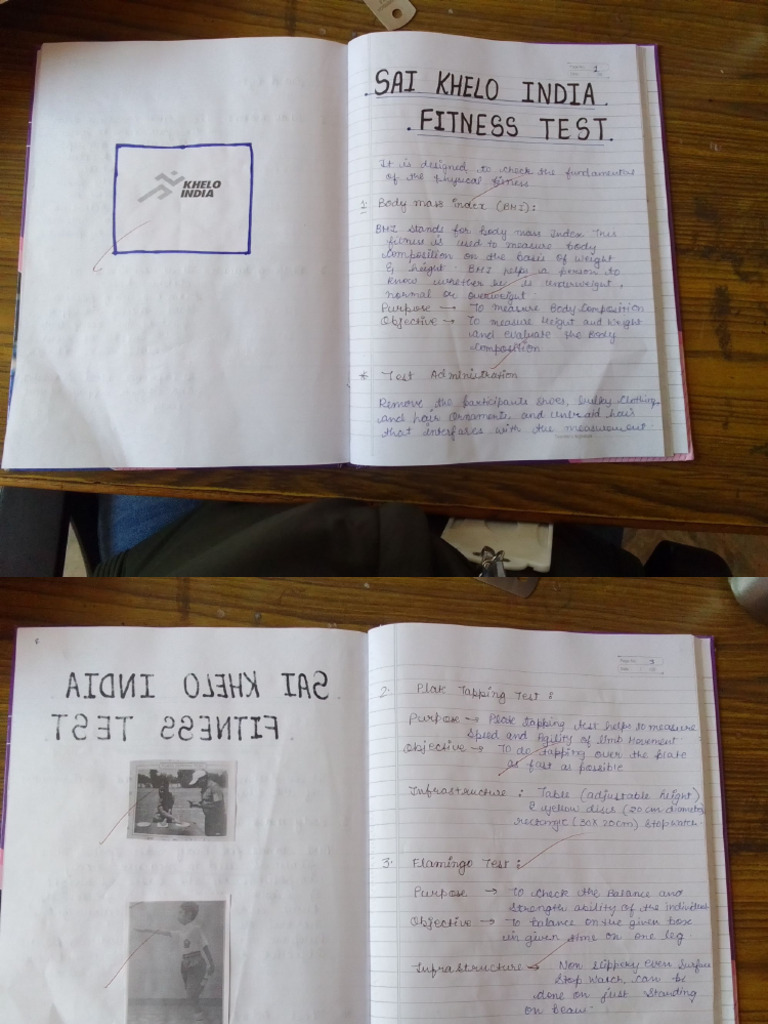 KHELO
INDIA
Page No. 1
SAI KHELO INDIA
FITNESS TEST.
It is designed to check the fundamental
of the physical fitness
1. Body mass index (BMI):
BMI stands for body mass Index This
fitness is used to measure body
Composition on the basis of weight
& height. BMI helps a person to
know whether he is underweight,
normal or overweight.
Purpose → To measure Body Composition
Objective → To measure Height and Weight
and evaluate the Body
Composition
* Test Administration
Remove the participants shoes, bulky Clothing
and hair Ornaments, and unbraid hair
that interfares with the measurement.
SAI KHELO INDIA
FITNESS TEST
Page No. 3
2. Plak Tapping Test:
Purpose → Plak tapping test helps to measure
Speed and Agility of limb Movement
Objective → To do tapping over the plate
as fast as possible
Infrastructure : Table (adjustable height)
2 yellow discs (20 cm diameter)
rectangle (30x20cm) Stop Watch.
3. Flamingo Test:
Purpose → To Check the Balance and
Strength ability of the individual
Objective → To balance on the given box
in given time on one leg.
Infrastructure → Non slippery even Surface
Stop Watch, can be
done on just Standing
on Beam.